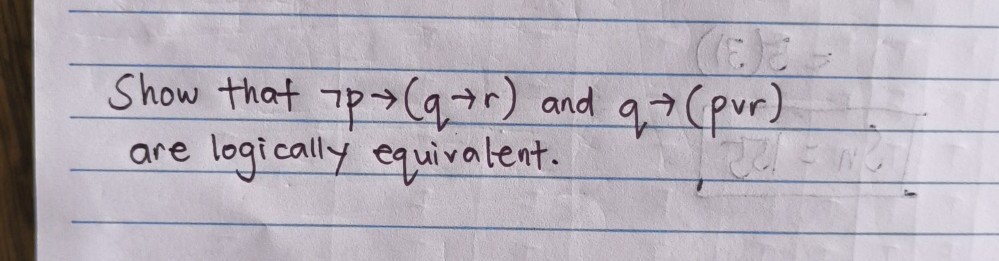 Show that ¬p→(q→r) and q→(p∨r)
are logically equivalent.